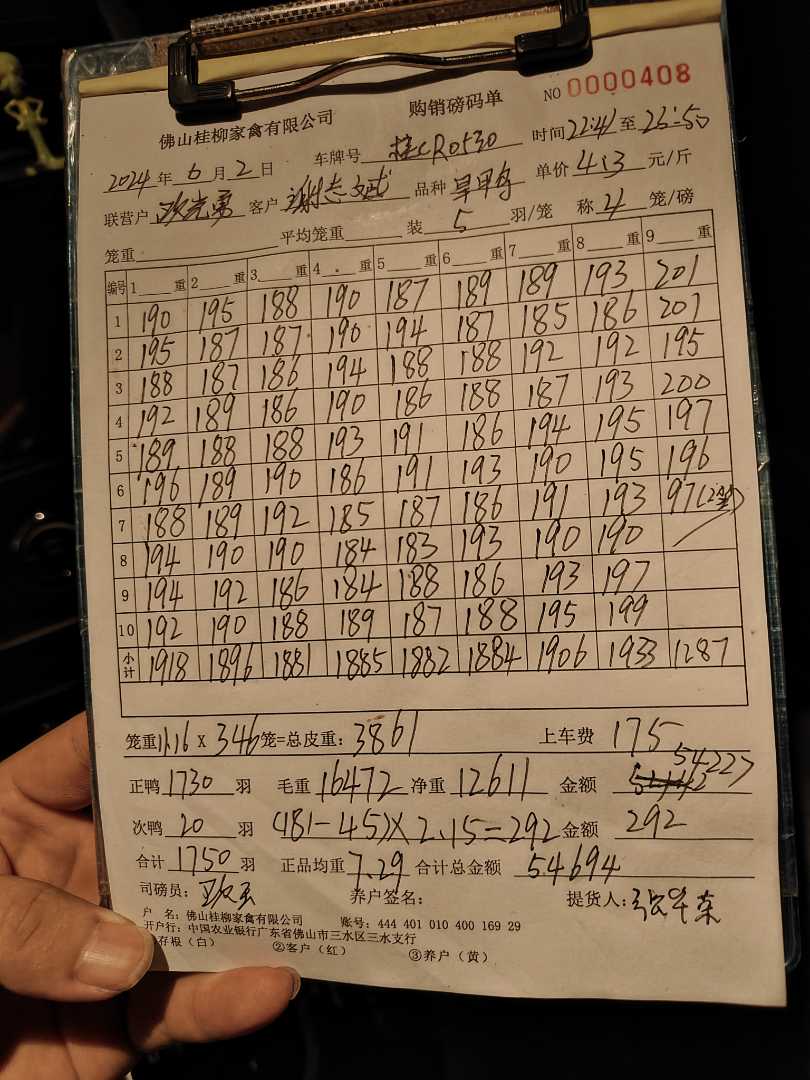 佛山桂柳家禽有限公司 购销磅码单 NO 0000408
2024年6月2日 车牌号 桂CR0530 时间22:41至23:50
联营户 客户 谢志斌 品种 单价4.3元/斤
笼重 平均笼重 装5羽/笼 称4笼/磅
编号 1 重 2 重 3 重 4 重 5 重 6 重 7 重 8 重 9 重
1 190 195 188 190 187 189 189 193 201
2 195 187 187 190 194 187 185 186 207
3 188 187 186 194 188 188 192 192 195
4 192 189 186 190 186 188 187 193 200
5 189 188 188 193 191 186 194 195 197
6 196 189 190 186 191 193 190 195 196
7 188 189 192 185 187 186 191 193 97(2笼)
8 194 190 190 184 183 193 190 190
9 194 192 186 184 188 186 193 197
10 192 190 188 189 187 188 195 199
小计 1918 1896 1881 1885 1882 1884 1906 1933 1287
笼重11.16 X 346笼=总皮重：3861 上车费 175
正鸭1730羽 毛重16472 净重12611 金额 54227
次鸭20羽 (181-45)×2.15=292 金额 292
合计1750羽 正品均重7.29 合计总金额 54694
司磅员： 养户签名： 提货人：
户 名：佛山桂柳家禽有限公司 账号：444 401 010 400 169 29
开户行：中国农业银行广东省佛山市三水区三水支行
存根（白） ②客户（红） ③养户（黄）